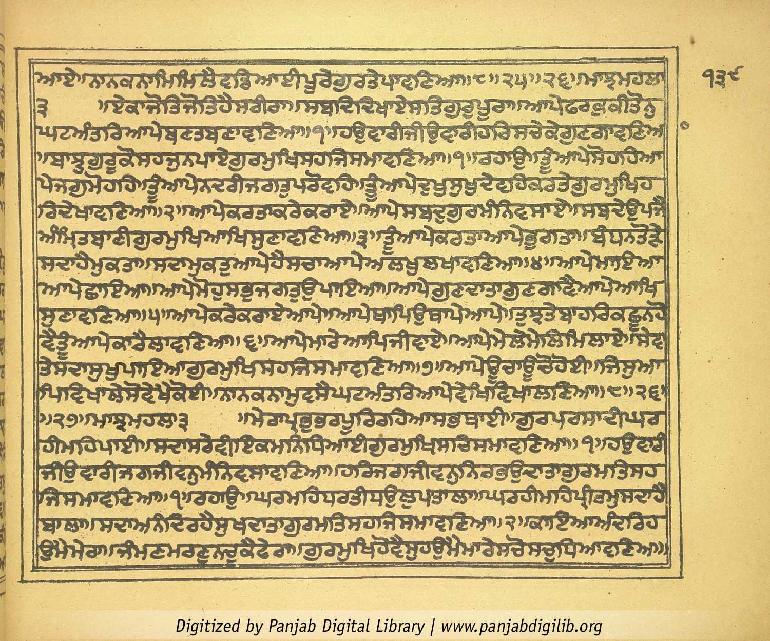 ਆਏ॥ਨਾਨਕਨਾਮਿਮਿਲੈਵਡਿਆਈਪੂਰੇਗੁਰਤੇਪਾਵਣਿਆ॥੮॥੨੫॥੨੬॥ਮਾਝਮਹਲਾ
੧੩੯
੩ ॥ਏਕਾਜੋਤਿਜੋਤਿਹੈਸਰੀਰਾ॥ਸਬਦਿਦਿਖਾਏਸਤਿਗੁਰੁਪੂਰਾ॥ਆਪੇਫਰਕੁਕੀਤੋਨੁ
ਘਟਅੰਤਰਿਆਪੇਬਣਤਬਣਾਵਣਿਆ॥੧॥ਹਉਵਾਰੀਜੀਉਵਾਰੀਹਰਿਸਚੇਕੇਗੁਣਗਾਵਣਿਆ
॥ਬਾਝੁਗੁਰੂਕੋਸਹਜੁਨਪਾਏਗੁਰਮੁਖਿਸਹਜਿਸਮਾਵਣਿਆ॥੧॥ਰਹਾਉ॥ਤੂੰਆਪੇਸੋਹਹਿਆ
ਪੇਜਗੁਮੋਹਹਿ॥ਤੂੰਆਪੇਨਦਰੀਜਗਤੁਪਰੋਵਹਿ॥ਤੂੰਆਪੇਦੁਖੁਸੁਖੁਦੇਵਹਿਕਰਤੇਗੁਰਮੁਖਿਹ
ਰਿਦੇਖਾਵਣਿਆ॥੨॥ਆਪੇਕਰਤਾਕਰੇਕਰਾਏ॥ਆਪੇਸਬਦੁਗੁਰਮੰਨਿਵਸਾਏ॥ਸਬਦੇਉਪਜੈ
ਅੰਮ੍ਰਿਤਬਾਣੀਗੁਰਮੁਖਿਆਖਿਸੁਣਾਵਣਿਆ॥੩॥ਤੂੰਆਪੇਕਰਤਾਆਪੇਭੁਗਤਾ॥ਬੰਧਨਤੋੜੇ
ਸਦਾਹੈਮੁਕਤਾ॥ਸਦਾਮੁਕਤੁਆਪੇਹੈਸਚਾਆਪੇਅਲਖੁਲਖਾਵਣਿਆ॥੪॥ਆਪੇਮਾਇਆ
ਆਪੇਛਾਇਆ॥ਆਪੇਮੋਹੁਸਭੁਜਗਤੁਉਪਾਇਆ॥ਆਪੇਗੁਣਦਾਤਾਗੁਣਗਾਵੈਆਪੇਆਖਿ
ਸੁਣਾਵਣਿਆ॥੫॥ਆਪੇਕਰੇਕਰਾਏਆਪੇ॥ਆਪੇਥਾਪਿਉਥਾਪੇਆਪੇ॥ਤੁਝਤੇਬਾਹਰਿਕਛੂਨਹੋ
ਵੈਤੂੰਆਪੇਕਾਰੈਲਾਵਣਿਆ॥੬॥ਆਪੇਮਾਰੇਆਪਿਜੀਵਾਏ॥ਆਪੇਮੇਲੇਮੇਲਿਮਿਲਾਏ॥ਸੇਵ
ਤੇਸਦਾਸੁਖੁਪਾਇਆਗੁਰਮੁਖਿਸਹਜਿਸਮਾਵਣਿਆ॥੭॥ਆਪੇਊਚਾਊਚੋਹੋਈ॥ਜਿਸੁਆ
ਪਿਵਿਖਾਲੇਸੋਵੇਖੈਕੋਈ॥ਨਾਨਕਨਾਮੁਵਸੈਘਟਅੰਤਰਿਆਪੇਵੇਖਿਵਿਖਾਲਣਿਆ॥੮॥੨੬॥
॥੨੭॥ਮਾਝਮਹਲਾ੩ ॥ਮੇਰਾਪ੍ਰਭੁਭਰਪੂਰਿਰਹਿਆਸਭਥਾਈ॥ਗੁਰਪਰਸਾਦੀਘਰ
ਹੀਮਹਿਪਾਈ॥ਸਦਾਸਰੇਵੀਇਕਮਨਿਧਿਆਈਗੁਰਮੁਖਿਸਚਿਸਮਾਵਣਿਆ॥੧॥ਹਉਵਾਰੀ
ਜੀਉਵਾਰੀਜਗਜੀਵਨੁਮੰਨਿਵਸਾਵਣਿਆ॥ਹਰਿਜਗਜੀਵਨੁਨਿਰਭਉਦਾਤਾਗੁਰਮਤਿਸਹ
ਜਿਸਮਾਵਣਿਆ॥੧॥ਰਹਾਉ॥ਘਰਮਹਿਧਰਤੀਧਉਲੁਪਾਤਾਲਾ॥ਘਰਹੀਮਹਿਪ੍ਰੀਤਮੁਸਦਾਹੈ
ਬਾਲਾ॥ਸਦਾਅਨੰਦਿਰਹੈਸੁਖਦਾਤਾਗੁਰਮਤਿਸਹਜਿਸਮਾਵਣਿਆ॥੨॥ਕਾਇਆਅੰਦਰਿਹ
ਉਮੈਮੇਰਾ॥ਜੰਮਣਮਰਣੁਨਚੂਕੈਫੇਰਾ॥ਗੁਰਮੁਖਿਹੋਵੈਸੁਹਉਮੈਮਾਰੇਸਚੋਸਚੁਧਿਆਵਣਿਆ॥
Digitized by Panjab Digital Library | www.panjabdigilib.org